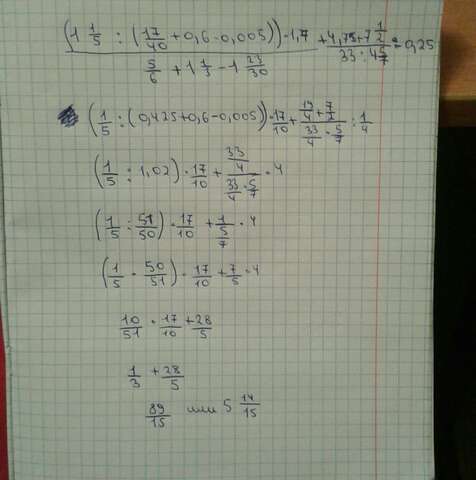 (1 1/5 : (17/40 + 0,6 - 0,005)) · 1,7 / (5/6 + 1 1/3 - 1 23/30) + (4,75 + 7 1/2) / (33 : 4 5/7) : 0,25
(1/5 : (0,425 + 0,6 - 0,005)) · 17/10 + (19/4 + 7/2) / (33/4 · 5/7) : 1/4
(1/5 : 1,02) · 17/10 + (33/4) / (33/4 · 5/7) · 4
(1/5 : 51/50) · 17/10 + 1/(5/7) · 4
(1/5 · 50/51) · 17/10 + 7/5 · 4
10/51 · 17/10 + 28/5
1/3 + 28/5
89/15 или 5 14/15